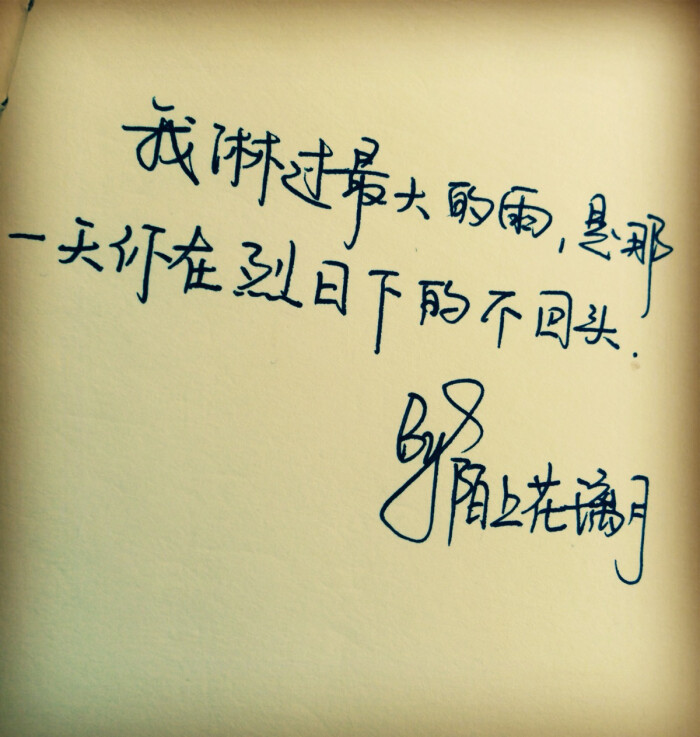 我淋过最大的雨,是那
一天你在烈日下的不回头.
By
陌上花漓月